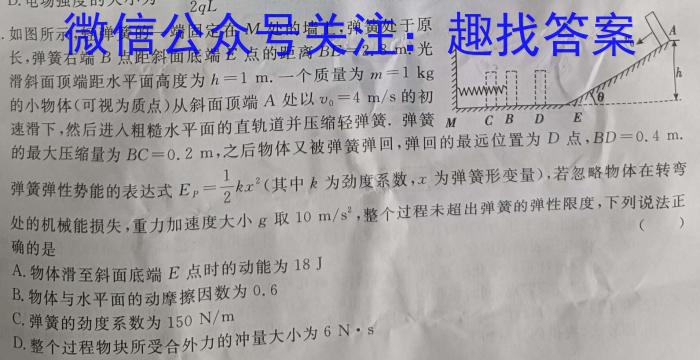 2qL
微信公众号关注：趣找答案
如图所示
端固定在M处的墙
弹簧处于原
长,弹簧右端B点距斜面底端E点的距离
m.光
滑斜面顶端距水平面高度为h=1 m.一个质量为m=1 kg
的小物体(可视为质点)从斜面顶端A处以v₀=4 m/s的初
速滑下,然后进入粗糙水平面的直轨道并压缩轻弹簧.弹簧
A
h
θ
M C B D E
的最大压缩量为BC=0.2 m,之后物体又被弹簧弹回,弹回的最远位置为D点,BD=0.4 m.
弹簧弹性势能的表达式Eₚ=1/2kx²(其中k为劲度系数,x为弹簧形变量),若忽略物体在转弯
处的机械能损失,重力加速度大小g取10 m/s²,整个过程未超出弹簧的弹性限度,下列说法正
确的是 ( )
A.物体滑至斜面底端E点时的动能为18 J
B.物体与水平面的动摩擦因数为0.6
C.弹簧的劲度系数为150 N/m
D.整个过程物块所受合外力的冲量大小为6 N·s